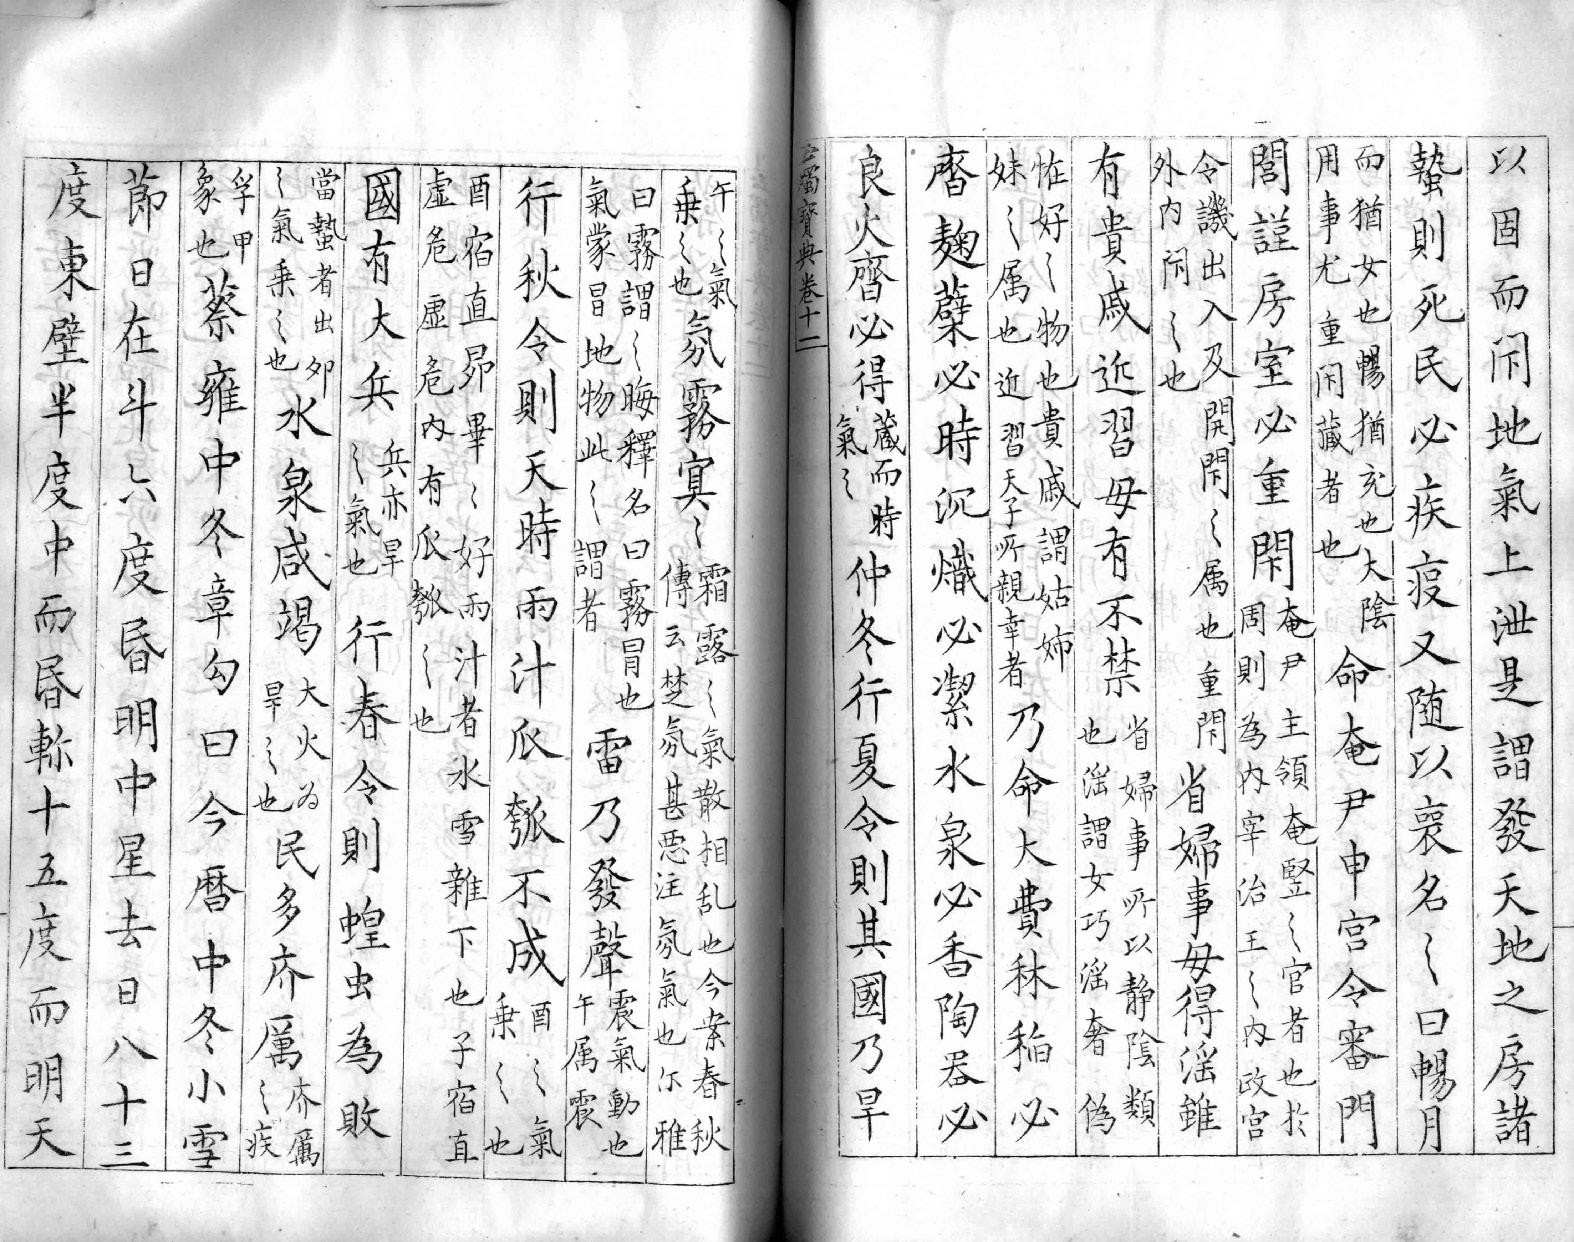 以固而閇地氣上泄是謂發天地之房諸
蟄則死民必疾疫又随以喪名〻曰暢月
而猶女也暢猶充也大陰
用事尤重閇藏者也
命奄尹申宮令審門
閭謹房室必重閇
奄尹主領奄竪〻官者也於
周則為内宰治王〻内政宮
令譏出入及開閇〻属也重閇
外内閇〻也
省婦事毋得淫雖
有貴戚近習毋有不禁
省婦事所以静陰類
也淫謂女巧淫奢偽
恠好〻物也貴戚謂姑姉
妹〻属也近習天子所親幸者
乃命大費秫稻必
齊麹蘖必時沉熾必潔水泉必香陶器必
良火齊必得
蔵而時
氣〻
仲冬行夏令則其國乃旱
玉燭寶典卷十一
午〻氣
乗〻也
氛霧㝠〻
霜露〻氣散相乱也今案春秋
傳云楚氛甚悪注氛氣也尓雅
曰霧謂〻晦釋名曰霧冒也
氣蒙冒地物此〻謂者
雷乃發聲
震氣動也
午属震
行秋令則天時雨汁瓜瓠不成
酉〻氣
乗〻也
酉宿直昴畢〻好雨汁者水雪雜下也子宿直
虚危虚危内有瓜瓠〻也
國有大兵
兵亦旱
〻氣也
行春令則蝗虫為敗
當蟄者出卯
〻氣乗〻也
水泉咸竭
大火為
旱〻也
民多疥厲
疥厲
〻疾
孚甲
象也
蔡雍中冬章勾曰今暦中冬小雪
莭日在斗六度昏明中星去日八十三
度東壁半度中而昏軫十五度而明天